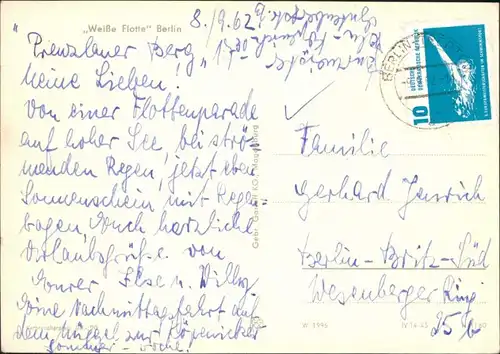 „Weiße Flotte" Berlin
8./9.62
"Prenzlauer Berg"
Meine Lieben!
Von einer Flottenparade
auf hoher See, bei strö-
menden Regen, jetzt eben
Sonnenschein mit Regen-
bogen, Euch herzliche
Urlaubsgrüße von
Eurer Else u. Willy
Eine Nachmittagsfahrt auf
dem Müggel zur Köpenicker
Sommer-woche!
Gebr. Garloff KG Magdeburg
BERLIN
DEUTSCHE
DEMOKRATISCHE REPUBLIK
10
Familie
Gerhard Jenrich
Berlin-Britz-Süd
Wesenberger Ring
25b
W 1946
IV 14 45